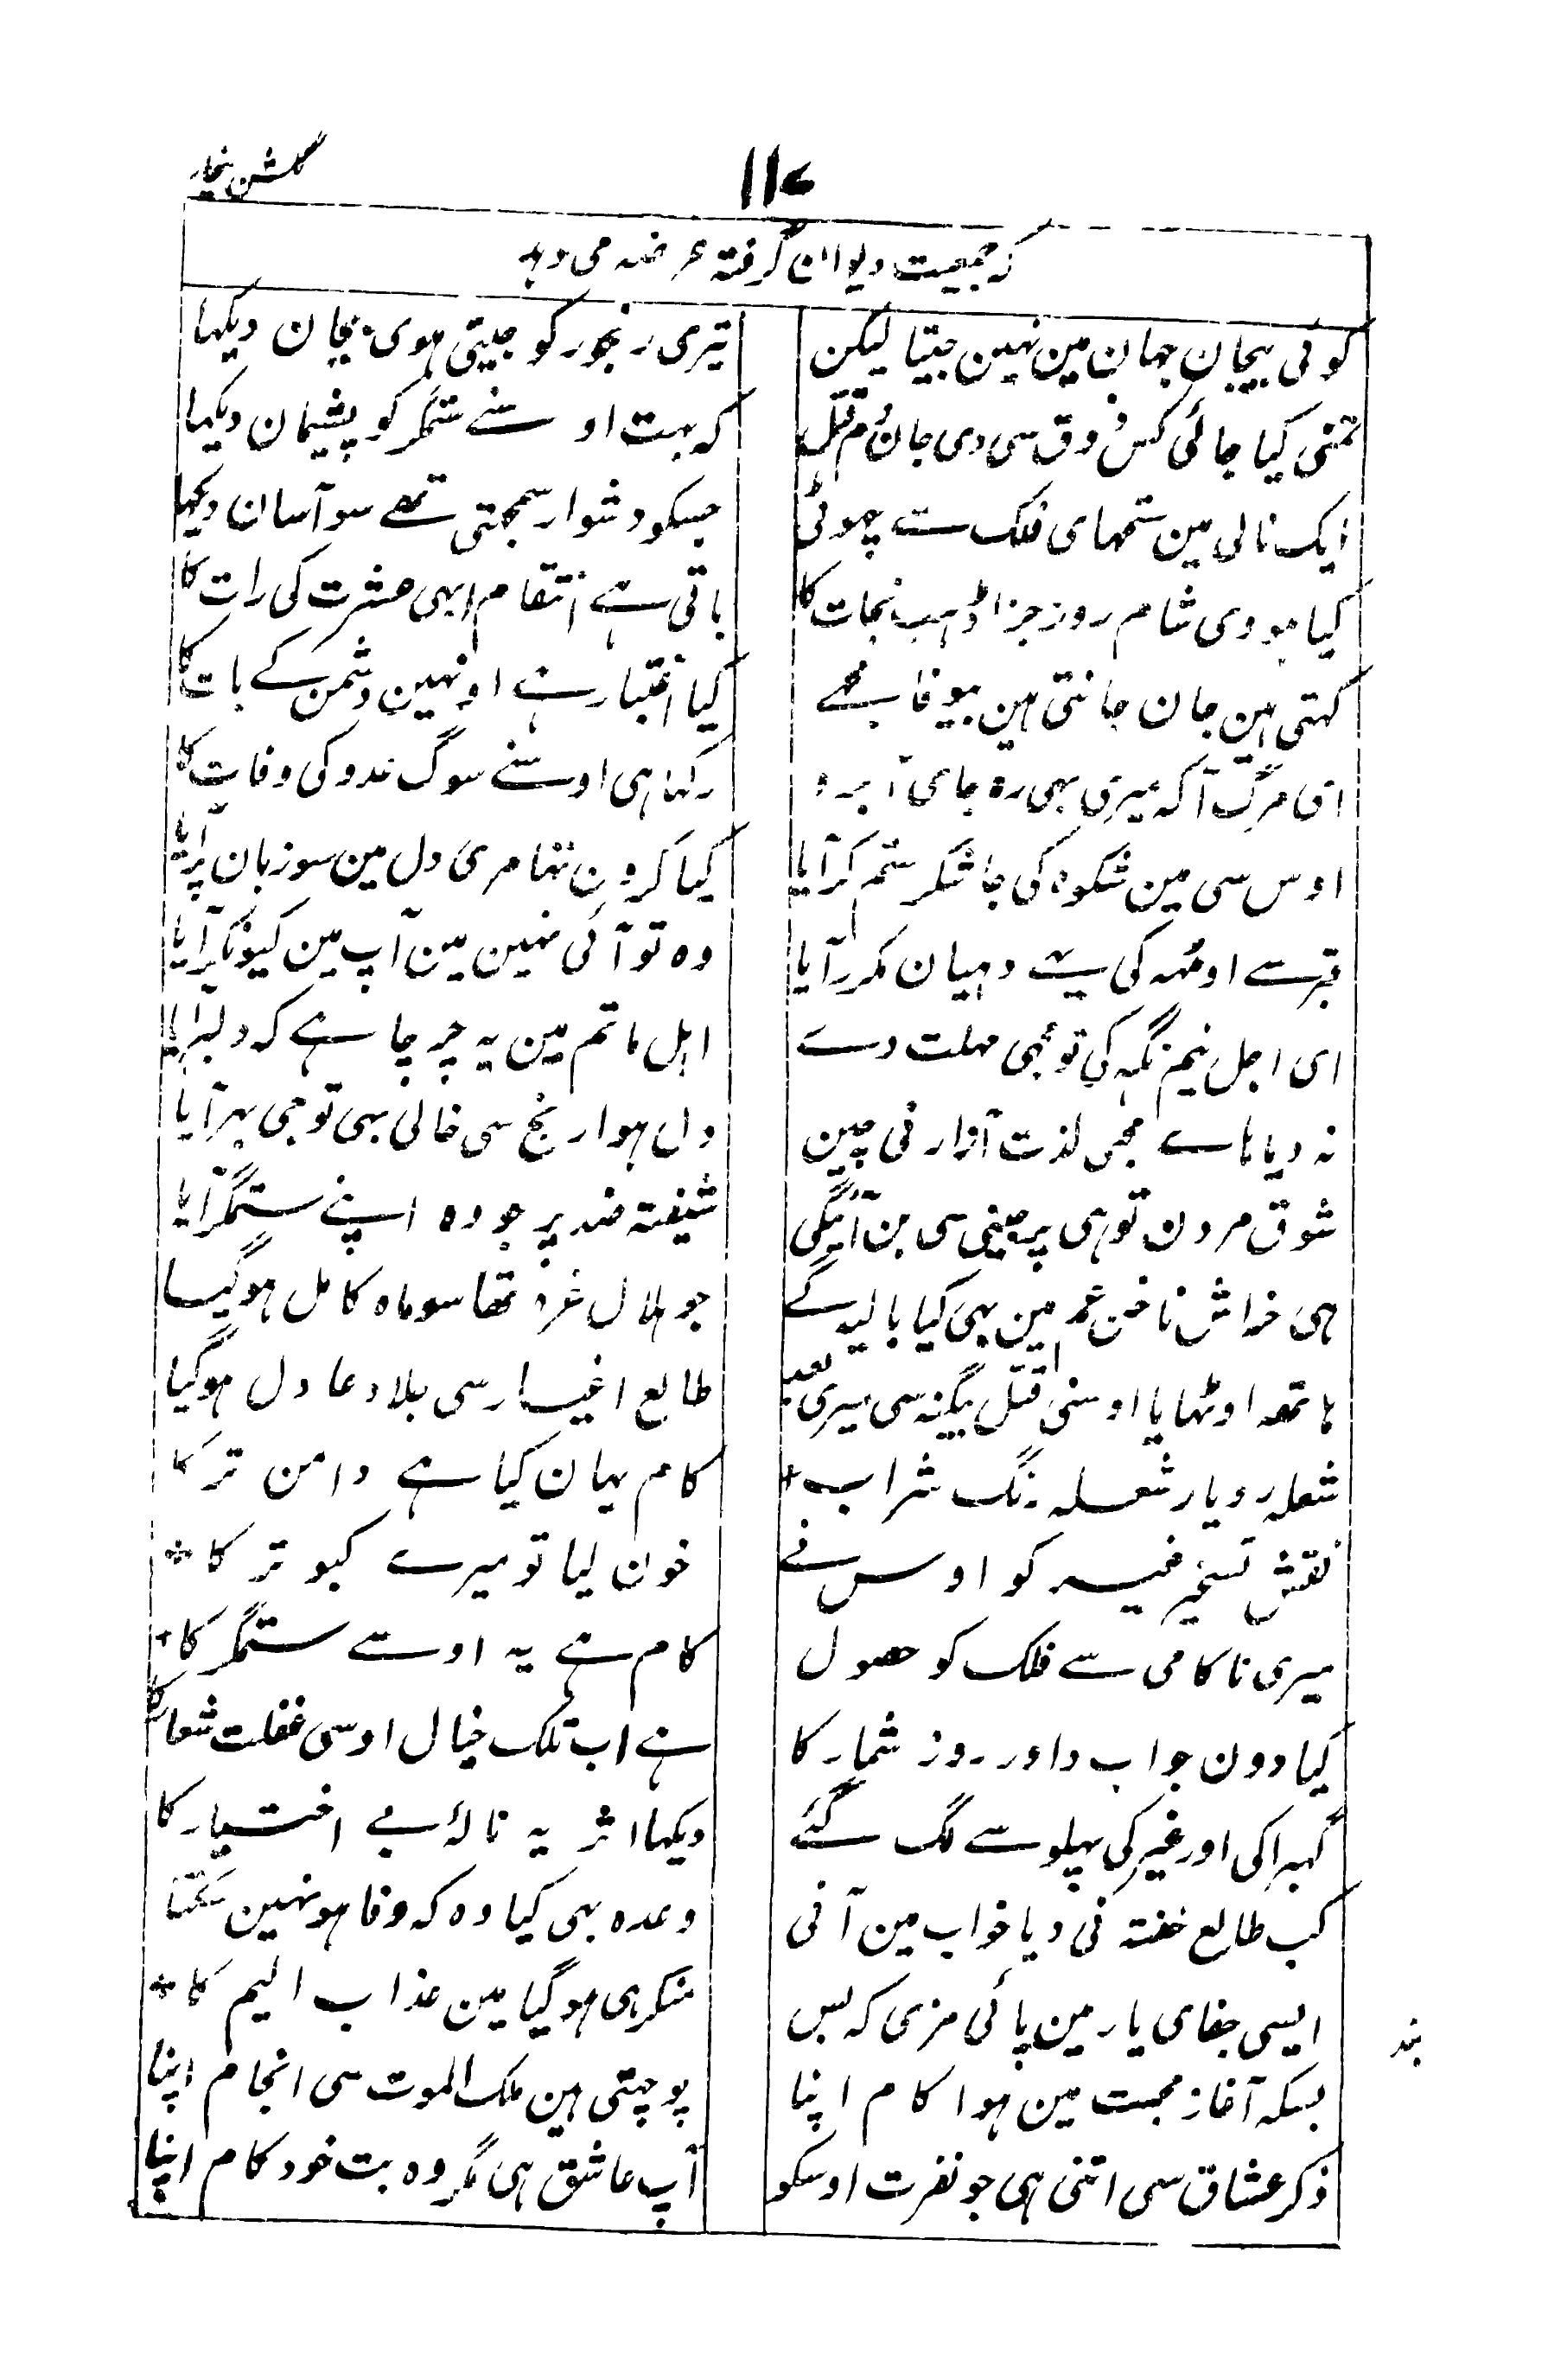 گلشن بیخار
۱۱۷
که جمعیت دیوان گرفته عرضه می دهد
کوئی بیجان جہان مین نہین جیتا لیکن
تیری رنجور کو جیتی ہوی بیجان دیکہا
تمنی کیا جائی کس ذوق سی دی جان دم قتل
کہ بہت اوسنے ستمگر کو پشیمان دیکہا
ایک نالی مین ستمہای فلک سے چہوٹی
جسکو دشوار سمجہتی تھے سو آسان دیکہا
کیا ہووی شام روز جزا ڈہب نجات کا
باقی ہے انتقام ابہی عشرت کی رات کا
کہتی ہین جان جانتی ہین بیوفا مجھے
کیا اعتبار ہے اونہین دشمن کے بات کا
ای مرگ آ کہ میری بہی رہ جای آبرو
رکہا ہی اوسنے سوگ عدو کی وفات کا
اوس سی مین شکوہ کی جا شکر ستم کر آیا
کیا کرون تہا مری دل مین سو زبان پر آیا
قبر سے اوٹہہ کی یہ دہیان مکرر آیا
وہ تو آئی نہین مین آپ مین کیونکر آیا
ای اجل نیم نگہ کی تو مجہی مہلت دے
اہل ماتم مین یہ چرچا ہے کہ دلبر آیا
نہ دیا ہاے مجہی لذت آزار نی چین
دل ہوا رنج سی خالی بہی تو جی بہر آیا
شوق مردن تو ہی پر جینی سی بن آئیگی
شیفتہ ضد پر جو وہ اپنے ستمگر آیا
ہی خراش ناخن غم مین بہی کیا بالیدگے
جو ہلال غرہ تھا سو ماہ کامل ہوگیا
ہاتھہ اوٹہایا اوسنی قتل بیگنہ سی میری بعد
طالع اغیار سی جلاد عادل ہوگیا
شعلہ رو یار شعلہ رنگ شراب
کام یہان کیا ہے دامن تر کا
نقش تسخیر غیر کو اوس نے
خون لیا تو میرے کبوتر کا
میری ناکامی سے فلک کو حصول
کام ہے یہ اوسے ستمگر کا
کیا دون جواب داور روز شمار کا
ہے اب تلک خیال اوسی غفلت شعار کا
گہبرا کی اور غیر کی پہلو سے لگ گئے
دیکہا اثر یہ نالۂ بے اختیار کا
کب طالع خفتہ نی دیا خواب مین آنی
وعدہ بہی کیا وہ کہ وفا ہو نہین سکتا
ایسی جفای یار مین پائی مزی کہ بس
منکر ہی ہوگیا مین عذاب الیم کا
بسکہ آغاز محبت مین ہوا کام اپنا
پوچہتی ہین ملک الموت سی انجام اپنا
ذکر عشاق سی اتنی ہی جو نفرت اوسکو
آپ عاشق ہی مگر وہ بت خود کام اپنا